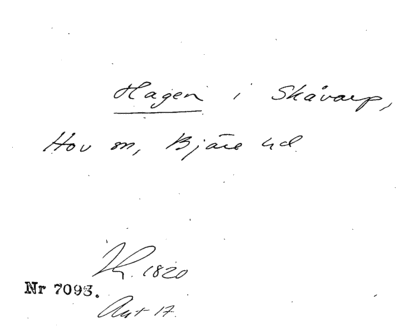 Hagen i Skåvarp,
Hov sn, Bjäre hd
Th. 1820
Nr 7093.
Ant 17.